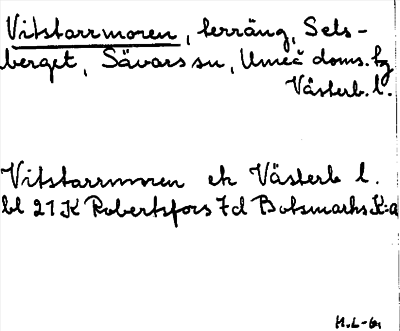 Vitstarrmoren, terräng, Sels-
berget, Sävars sn, Umeå doms.hg
Västerb. l.
Vitstarrmoren ek Västerb l.
bl 21K Robertsfors 7d Botsmarks K:a
H.L-G